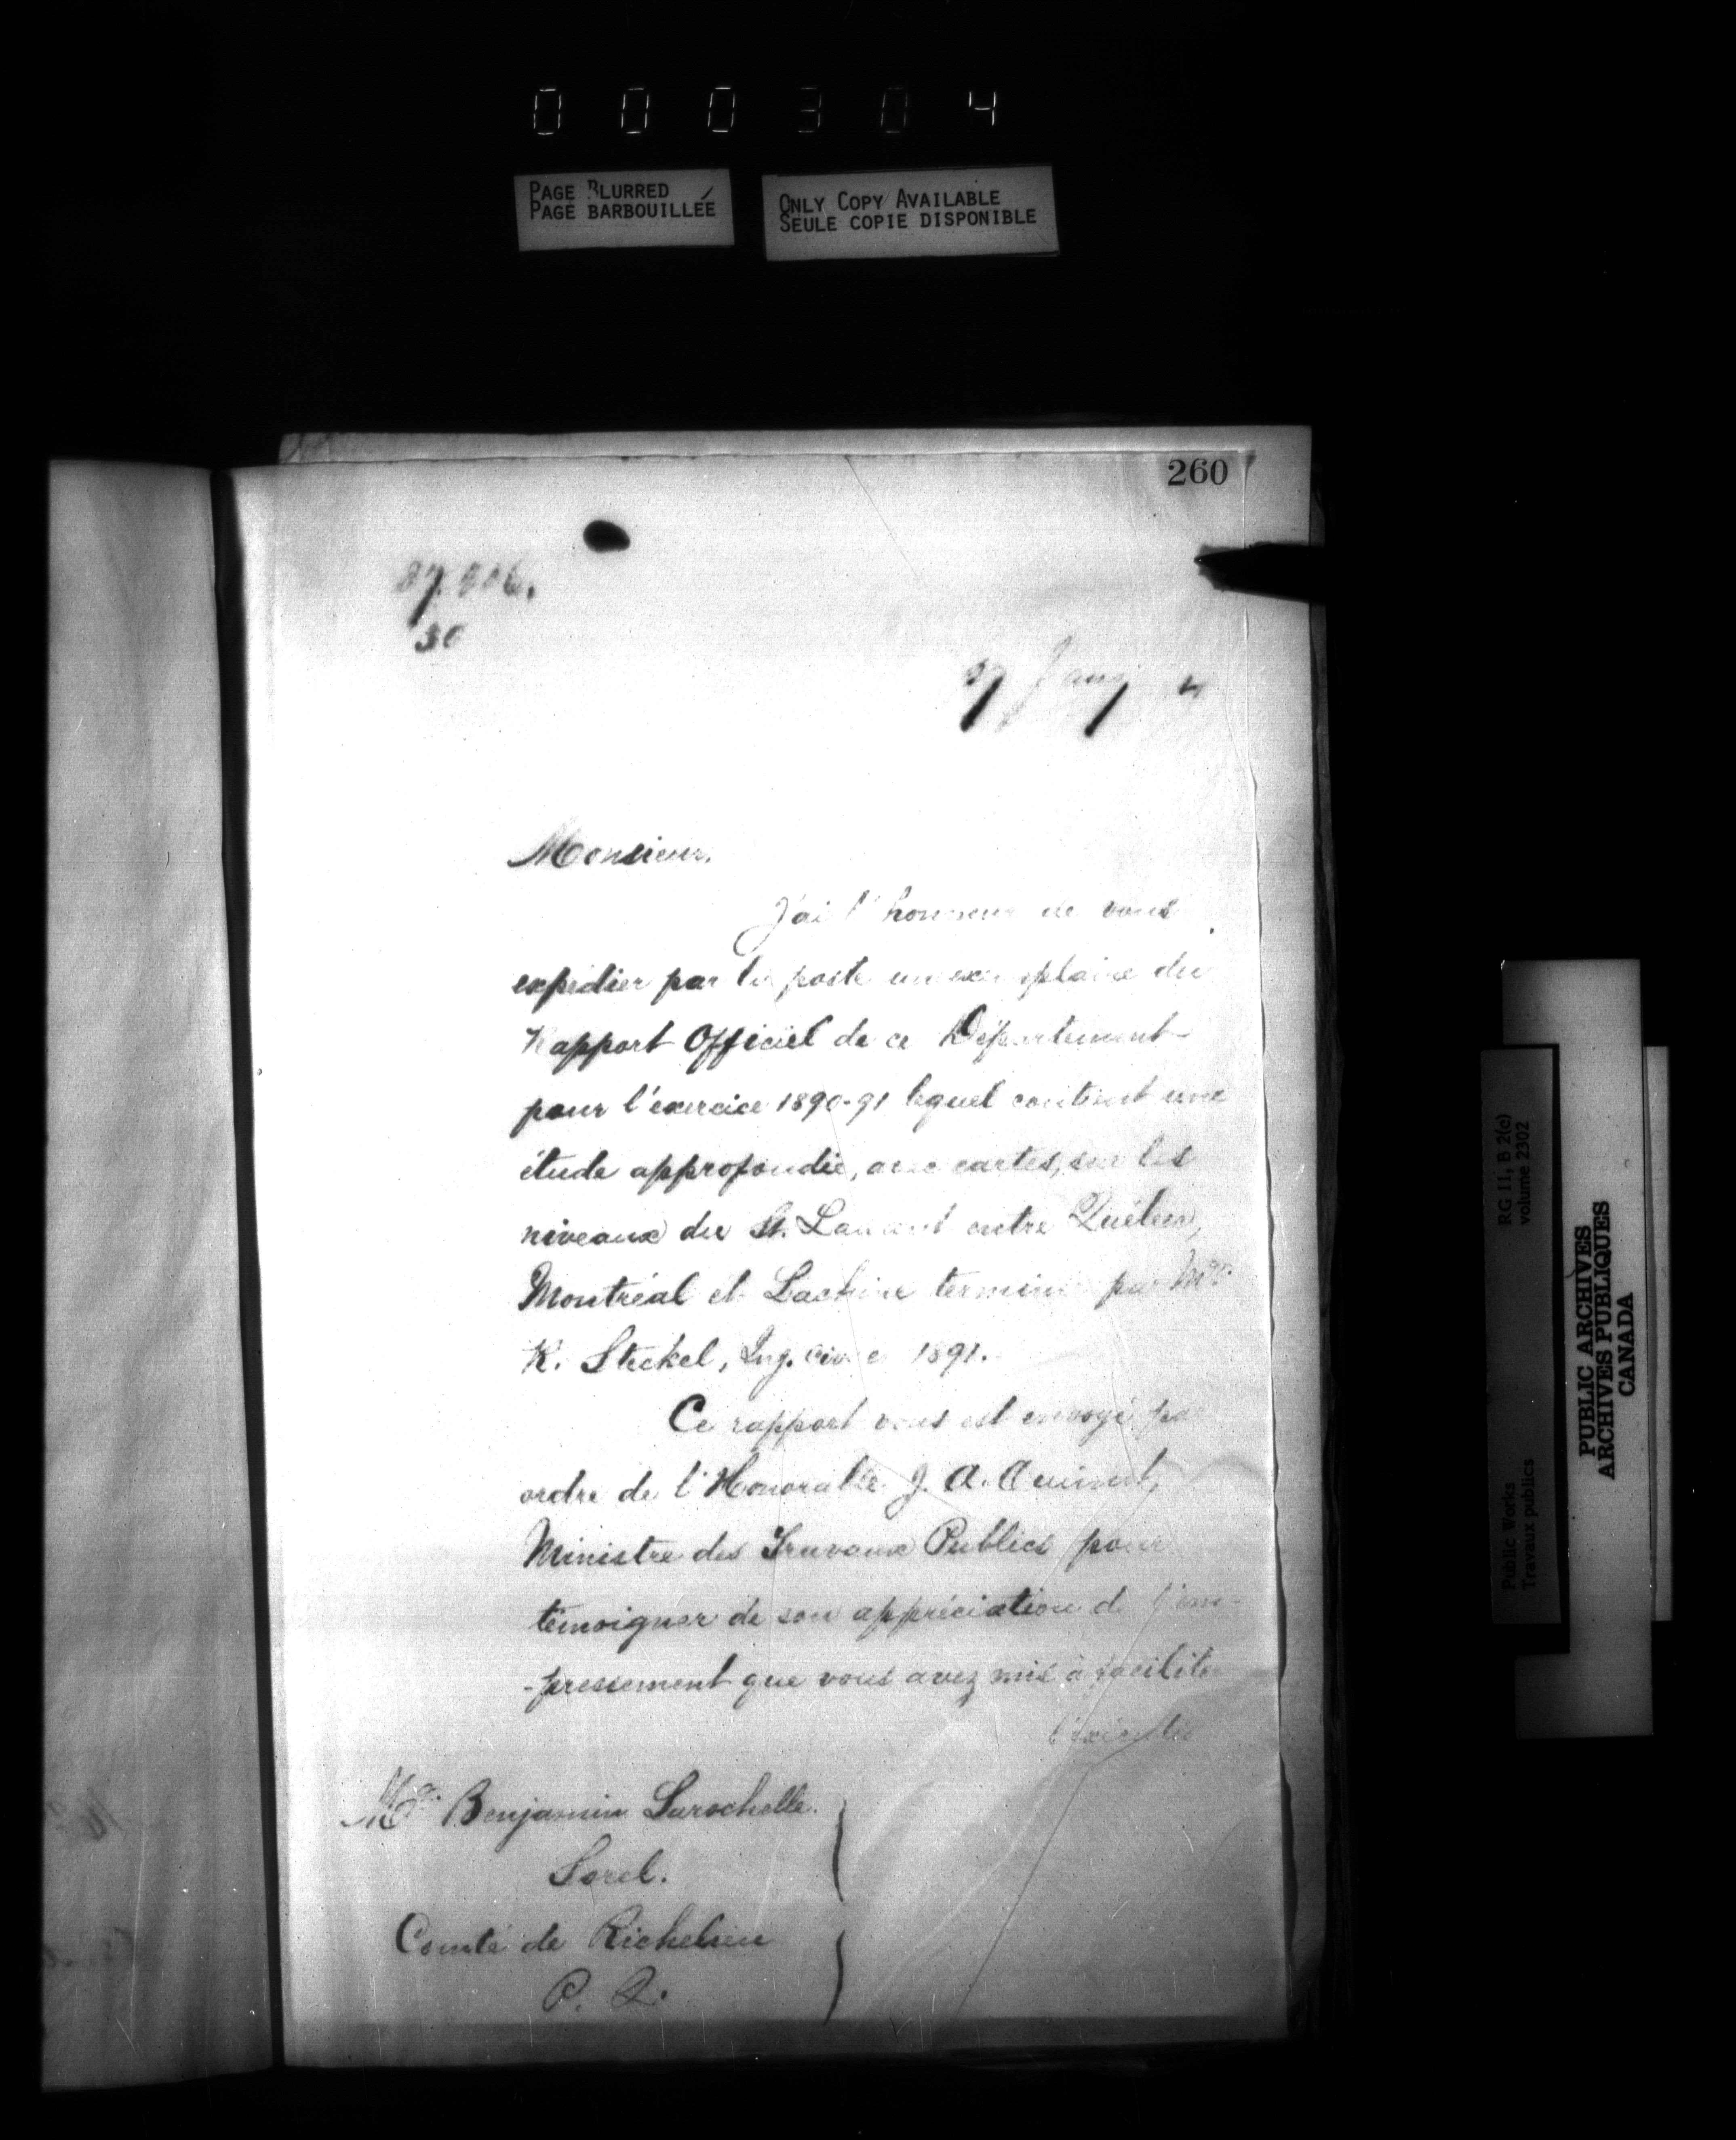 000304
PAGE BLURRED
PAGE BARBOUILLÉE
ONLY COPY AVAILABLE
SEULE COPIE DISPONIBLE
260
Monsieur,
J'ai l'honneur de vous
expédier par la poste un exemplaire du
Rapport Officiel de ce Département
pour l'exercice 1890-91 lequel contient une
étude approfondie, avec cartes, sur les
niveaux du St. Laurent entre Québec,
Montréal et Lachine terminé par Mr.
R. Steckel, Ing. Civ. en 1891.
Ce rapport vous est envoyé par
ordre de l'Honorable J. A. Ouimet,
Ministre des Travaux Publics pour
témoigner de son appréciation de l'em-
-pressement que vous avez mis à faciliter
Mr. Benjamin Larochelle.
Sorel.
Comté de Richelieu
P. Q.
RG 11, B 2(c)
volume 2302
Public Works
Travaux publics
PUBLIC ARCHIVES
ARCHIVES PUBLIQUES
CANADA